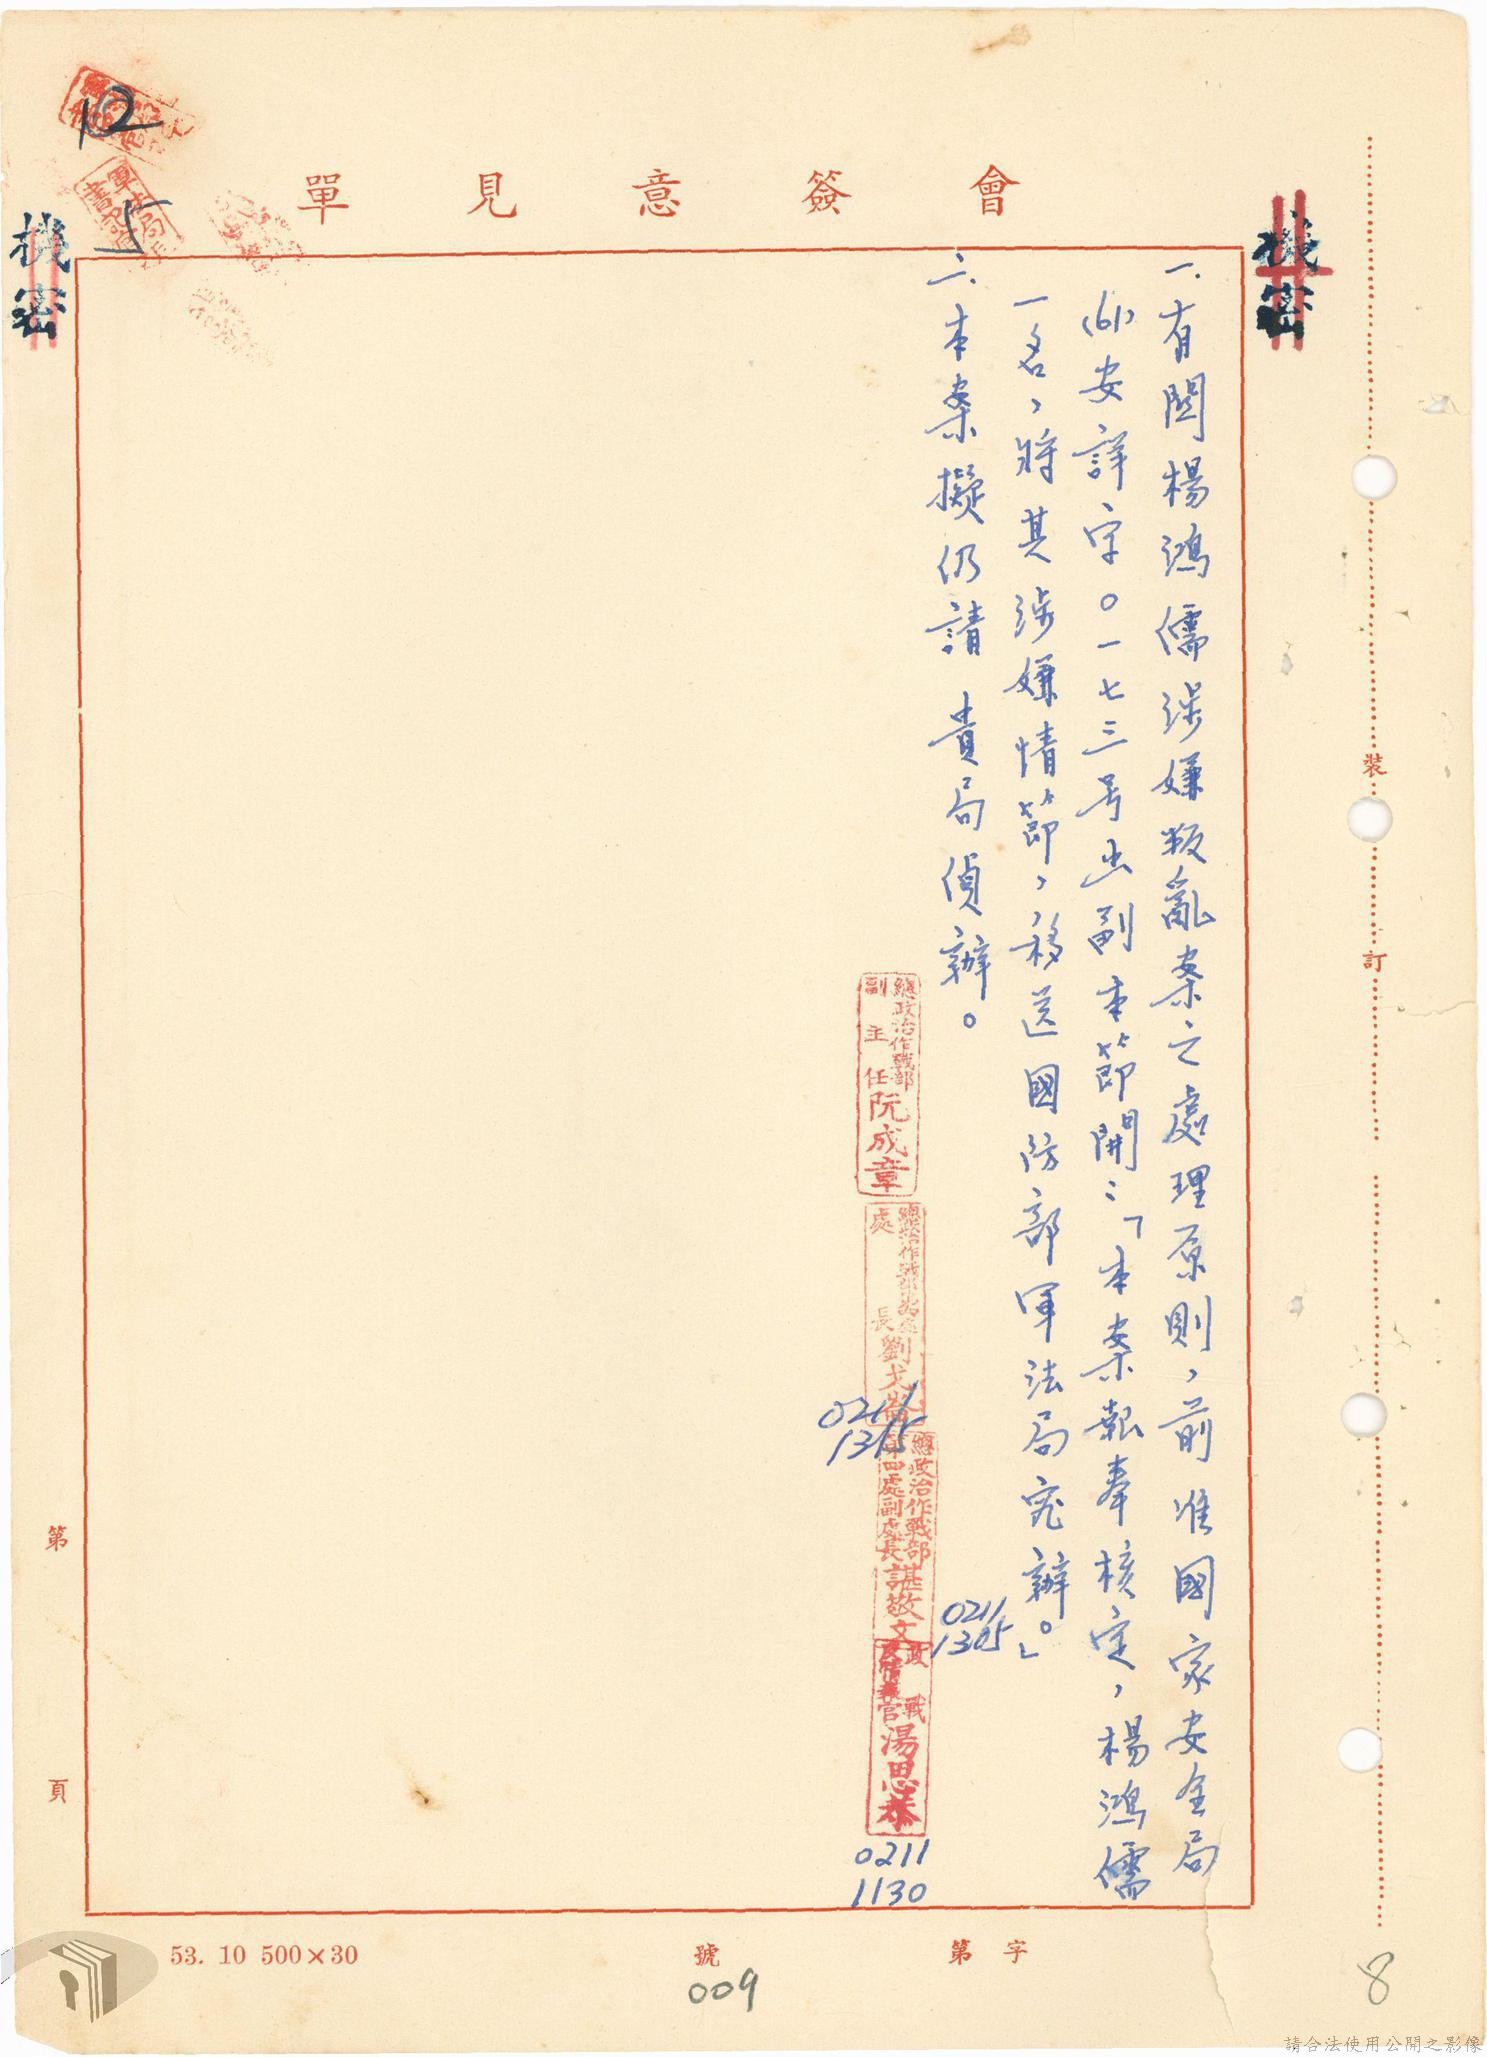 會簽意見單
機密
機密
12
5
一、有關楊鴻儒涉嫌叛亂案之處理原則，前准國家安全局
(61)安詳字〇一七三号函副本節開：「本案報奉核定，楊鴻儒
一名，將其涉嫌情節，移送國防部軍法局究辦。」
二、本案擬仍請 貴局偵辦。
總政治作戰部
副主任阮成章
處長劉戈崙
0211
1315
總政治作戰部
第四處副處長諶敬文
0211
1305
政戰
官湯思泰
0211
1130
裝
訂
第
頁
53. 10 500×30
字第
號
009
8
請合法使用公開之影像